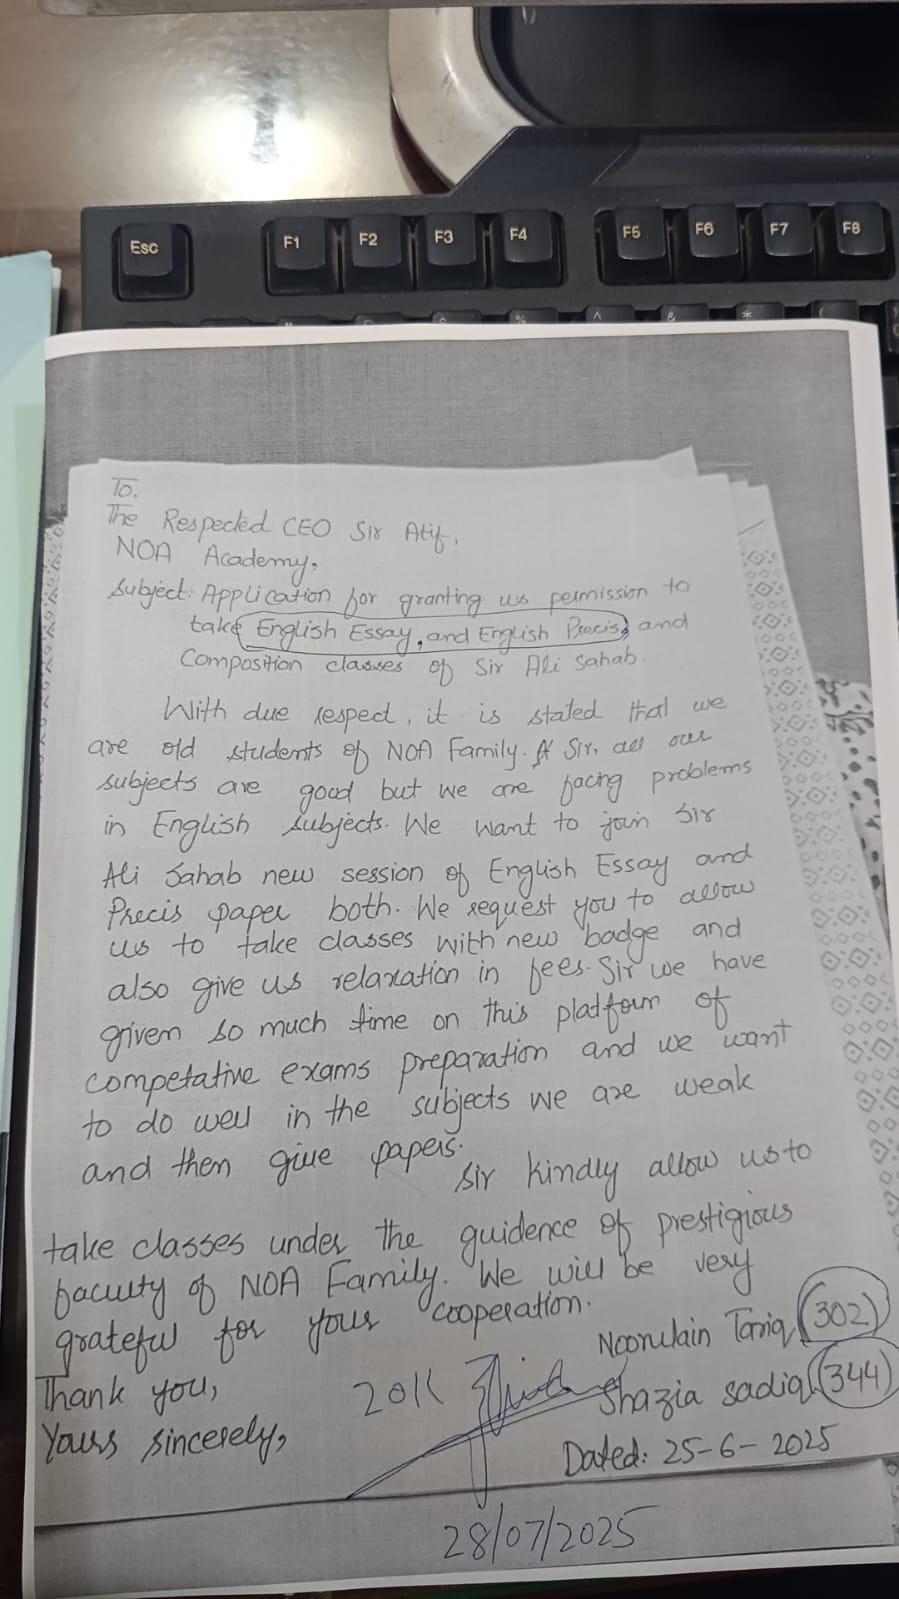 Esc F1 F2 F3 F4 F5 F6 F7 F8
% ^ & *
To,
The Respected CEO Sir Atif,
NOA Academy,
Subject: Application for granting us permission to
take English Essay, and English Precis, and
Composition classes of Sir Ali Sahab.
With due respect, it is stated that we
are old students of NOA Family. Sir, all our
subjects are good but we are facing problems
in English subjects. We want to join Sir
Ali Sahab new session of English Essay and
Precis paper both. We request you to allow
us to take classes with new badge and
also give us relaxation in fees. Sir we have
givem so much time on this platform of
competative exams preparation and we want
to do well in the subjects we are weak
and then give papers.
Sir kindly allow us to
take classes under the guidence of prestigious
faculty of NOA Family. We will be very
grateful for your cooperation.
Noorulain Tariq (302)
Thank you,
20K
Shazia sadiq (344)
Yours sincerely,
Dated: 25-6-2025
28/07/2025